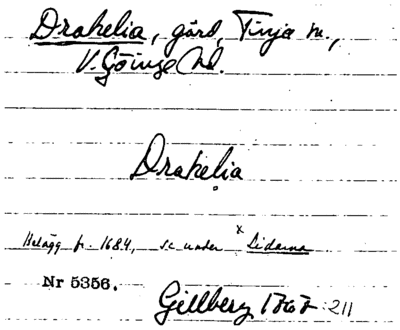 Drakelia, gård, Finja sn.,
V. Göinge hd.
Drakelia
Belägg fr. 1684, se under x Lidarna
Nr 5356.
Gillberg 1767: 211